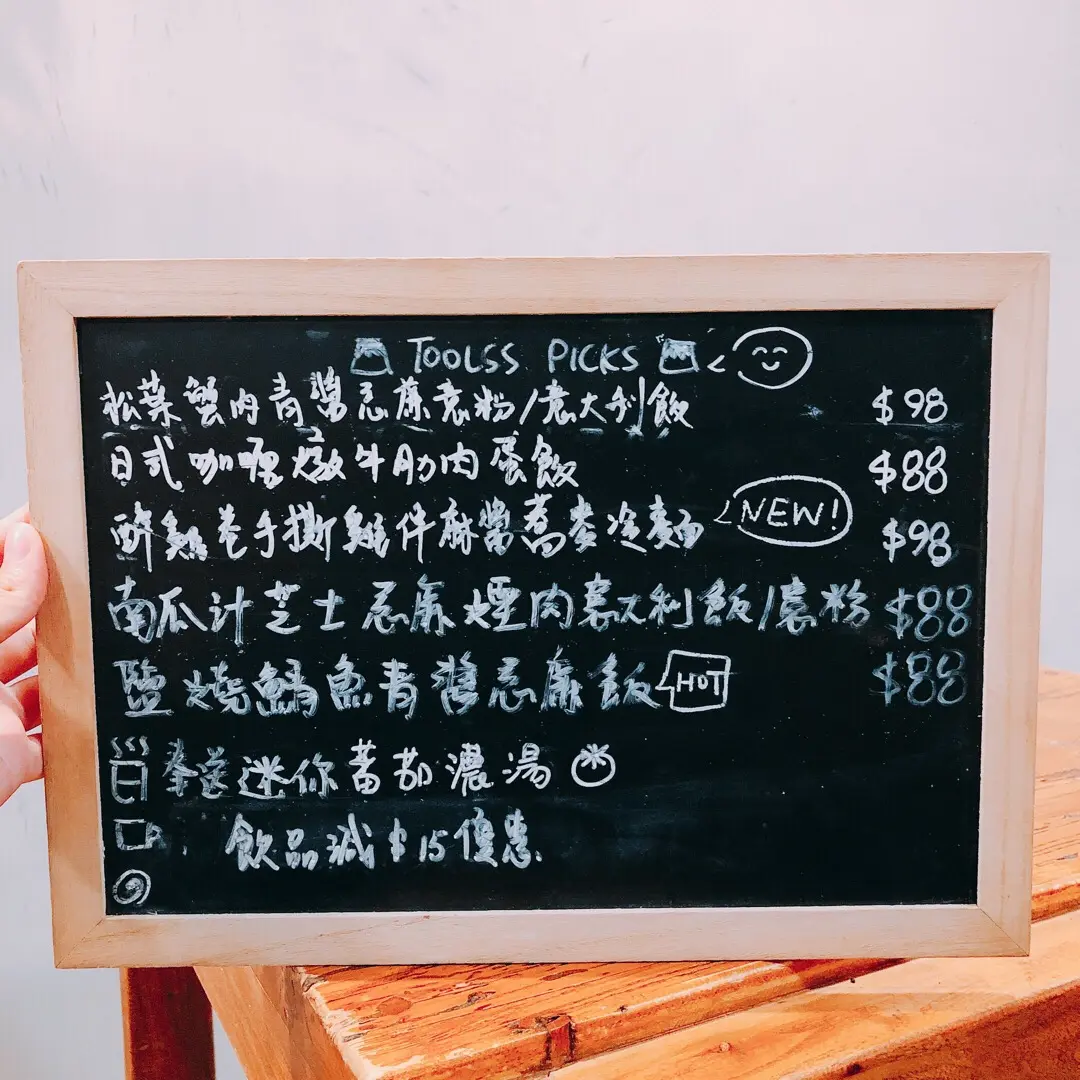 TOOLSS PICKS
松葉蟹肉青醬忌廉意粉/意大利飯 $98
日式咖喱燉牛肋肉蛋飯 $88
醉雞卷手撕雞件麻醬蕎麥冷麵 NEW! $98
南瓜汁芝士忌廉煙肉意大利飯/意粉 $88
鹽燒鯖魚青醬忌廉飯 HOT $88
奉送迷你蕃茄濃湯
飲品減$15優惠.